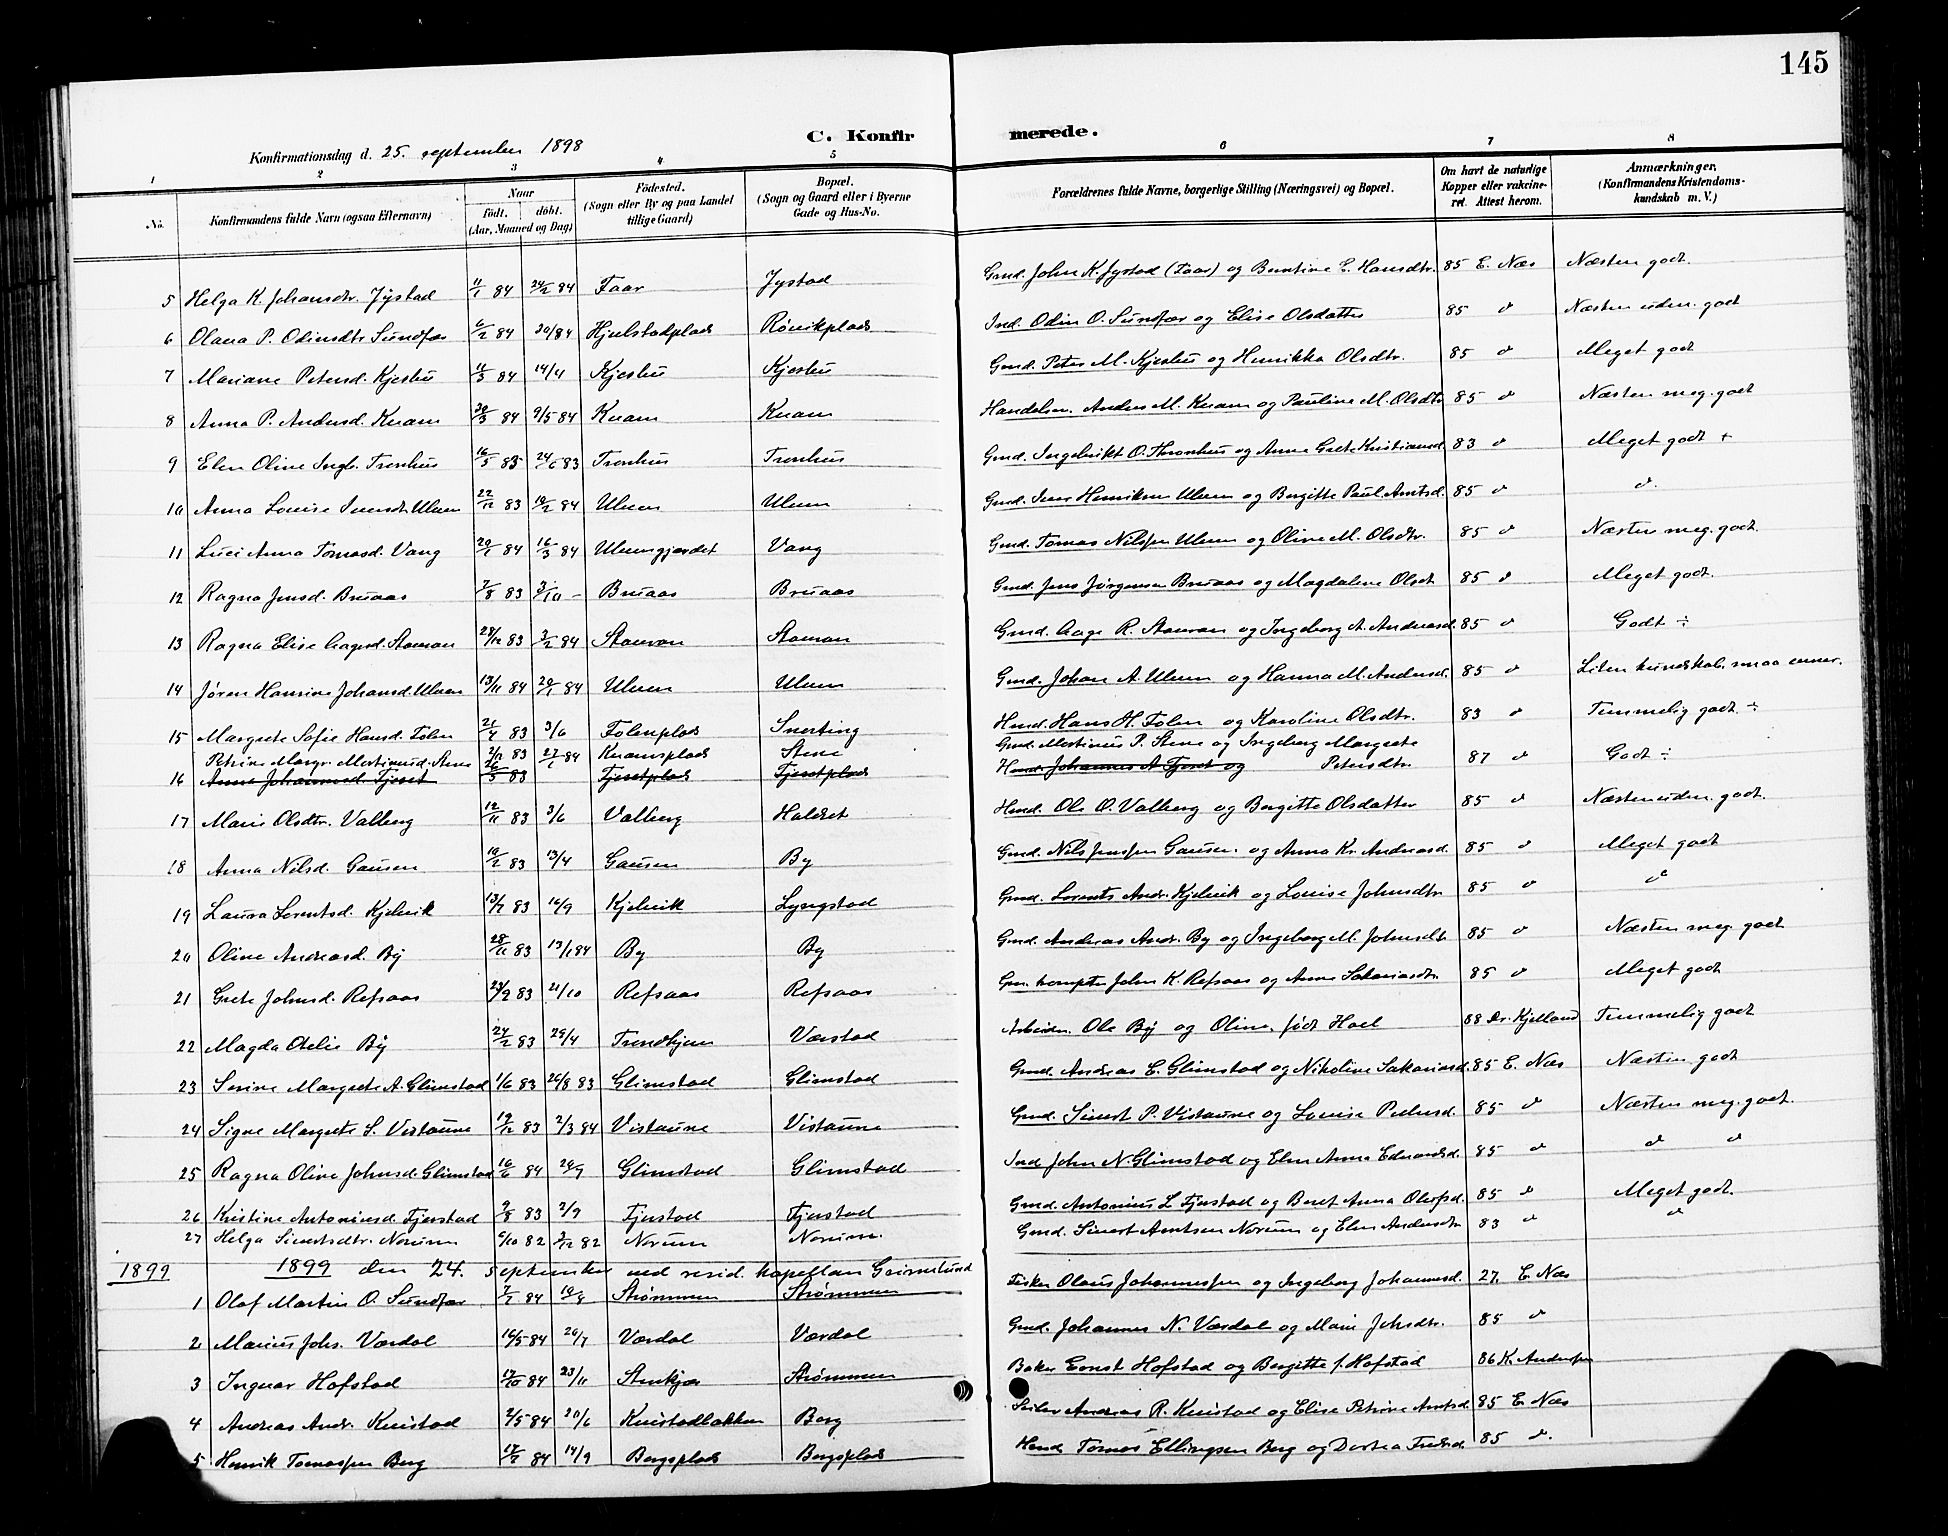 145
C. Konfirmerede.
Konfirmationsdag d. 25. september 1898
1 2 3 4 5 6 7 8
No. Konfirmandens fulde Navn (ogsaa Efternavn) Naar født. døbt. (Aar, Maaned og Dag) Fødested. (Sogn eller By og paa Landet tillige Gaard) Bopæl. (Sogn og Gaard eller i Byerne Gade og Hus-No. Forældrenes fulde Navne, borgerlige Stilling (Næringsvei) og Bopæl. Om havt de naturlige Kopper eller vakcineret. Attest herom. Anmærkninger, (Konfirmandens Kristendomskundskab m. V.)
5 Helga K. Johansdtr. Jystad 11/1 84 24/2 84 Faar Jystad Gmd. John K. Jystad (Faar) og Berntine E. Hansdtr. 85 E. Næs Næsten godt.
6 Olana P. Odinsdtr Sundfær 6/2 84 20/ 84 Hjulstadplads Røvikplads Ind. Odin O. Sundfær og Elise Olsdatter 85 d Næsten uden. godt
7 Mariane Petersd. Kjeshu 11/3 84 14/4 Kjeshu Kjeshu Gmd. Peter M. Kjeshu og Henrikka Olsdtr. 85 d Meget godt
8 Anna P. Andersd. Kvam 30/3 84 9/5 84 Kvam Kvam Handelsm. Anders M. Kvam og Pauline M. Olsdtr 85 d Næsten meg. godt
9 Elen Oline Ingb. Tronhus 16/5 83 24/6 83 Tronhus Tronhus Gmd. Ingebrikt O. Thronhus og Anne Grete Kristiansd. 83 d Meget godt +
10 Anna Louise Iversdt. Ulven 22/12 83 10/2 84 Ulven Ulven Gmd. Iver Henriksen Ulven og Bergitte Paul. Arntsd. 85 d d.
11 Luci Anna Tomasd. Vang 20/1 84 16/3 84 Ulvengjerdet Vang Gmd. Tomas Nilssen Ulven og Oline M. Olsdtr. 85 d Næsten meg. godt.
12 Ragna Jensd. Bruaas 7/8 83 7/10 - Bruaas Bruaas Gmd. Jens Jørgensen Bruaas og Magdalene Olsdt 85 d Meget godt.
13 Ragna Elise Aagesd. Stamnan 28/12 83 3/2 84 Stamnan Stamnan Gmd. Aage R. Stamnan og Ingeborg A. Andreasd. 85 d Godt ÷
14 Jøren Hansine Johansd. Ulven 13/11 84 20/1 84 Ulven Ulven Gmd. Johan A. Ulven og Hanna M. Andersd. 85 d Liten kundskab. smaa evner.
15 Margrete Sofie Hansd. Folen 21/4 83 3/6 Folenplads Snerting Hmd. Hans H. Folen og Karoline Olsdtr. 83 d Temmelig godt ÷
Petrine Margr. Martinusd. Stene 2/12 83 27/1 84 Kvamsplads Stene Gmd. Martinus P. Stene og Ingeborg Margrete
16 Anne Johannesd. Fjeset 83 Fjesetplads Fjesetplads Hmd. Johannes A. Fjeset og Petersdtr. 87 d Godt ÷
17 Marie Olsdtr. Valberg 12/11 83 3/6 Valberg Haldset Hmd. Ole O. Valberg og Bergitte Olsdatter 85 d Næsten uden. godt.
18 Anna Nilsd. Gausen 10/2 83 13/4 Gausen By Gmd. Nils Jenssen Gausen. og Anna Kr. Andreasd. 85 d Meget godt
19 Laura Lorentsd. Kjelvik 13/7 83 16/9 Kjelvik Lyngstad Gmd. Lorents Andr. Kjelvik og Louise Johnsdtr 85 d d
20 Oline Andreasd. By 28/11 83 13/1 84 By By Gmd. Andreas Andr. By og Ingeborg M. Johnsdtr 85 d Næsten meg. godt
21 Grete Johnsd. Refsaas 23/9 83 21/10 Refsaas Refsaas John K. Refsaas og Anne Sakariasdtr. 85 d Meget godt
22 Magda Otelie By 24/2 83 29/4 Trondhjem Værstad Arbeider. Ole By og Oline, født Hoel 88 Dr. Kjelland Temmelig godt
23 Serine Margrete A. Glimstad 1/6 83 26/8 83 Glimstad Glimstad Gmd. Andreas E. Glimstad og Nikoline Sakariasd. 85 E. Næs Næsten godt
24 Signe Margrete S. Vistaune 19/12 83 2/3 84 Vistaune Vistaune Gmd. Sivert P. Vistaune og Louise Pedersd. 85 d Næsten meg. godt.
25 Ragna Oline Johnsd. Glimstad 10/6 84 20/9 Glimstad Glimstad Ind John N. Glimstad og Elen Anna Edvardsd. 85 d d d
26 Kristine Antoniusd. Fjerstad 9/8 83 2/9 Fjerstad Fjerstad Gmd. Antonius L Fjerstad og Beret Anna Olufsd. 85 d Meget godt.
27 Helga Sivertsdtr. Norum 6/10 82 3/12 82 Norum Norum. Gmd. Sivert Arntsen Norum og Elen Andersdtr 83 d d
1899 1899 den 24. september ved resid. kapellan Grimelund
1 Olaf Martin O. Sundfær 7/7 84 10/8 Strømmen Strømmen Fisker Olaus Johannessen og Ingeborg Johannesd. 27. E. Næs
2 Marius Johs. Værdal 16/5 84 20/7 Værdal Værdal Gmd. Johannes N. Værdal og Marie Johsdtr. 85 d
3 Ingvar Hofstad 17/10 84 23/11 Stenkjær Strømmen Baker Ernst Hofstad og Bergitte f. Hofstad 86 K. Anderssen
4 Andreas Andr. Kvistad 2/5 84 20/6 Kvistadbakken Berg Andreas R. Kvistad og Elise Petrine Arntsd. 85 E. Næs
5 Henrik Tomassen Berg 17/7 84 14/9 Bergsplads Bergsplads Hmd Tomas Ellingsen Berg og Dortea Fredsd. 85 d.